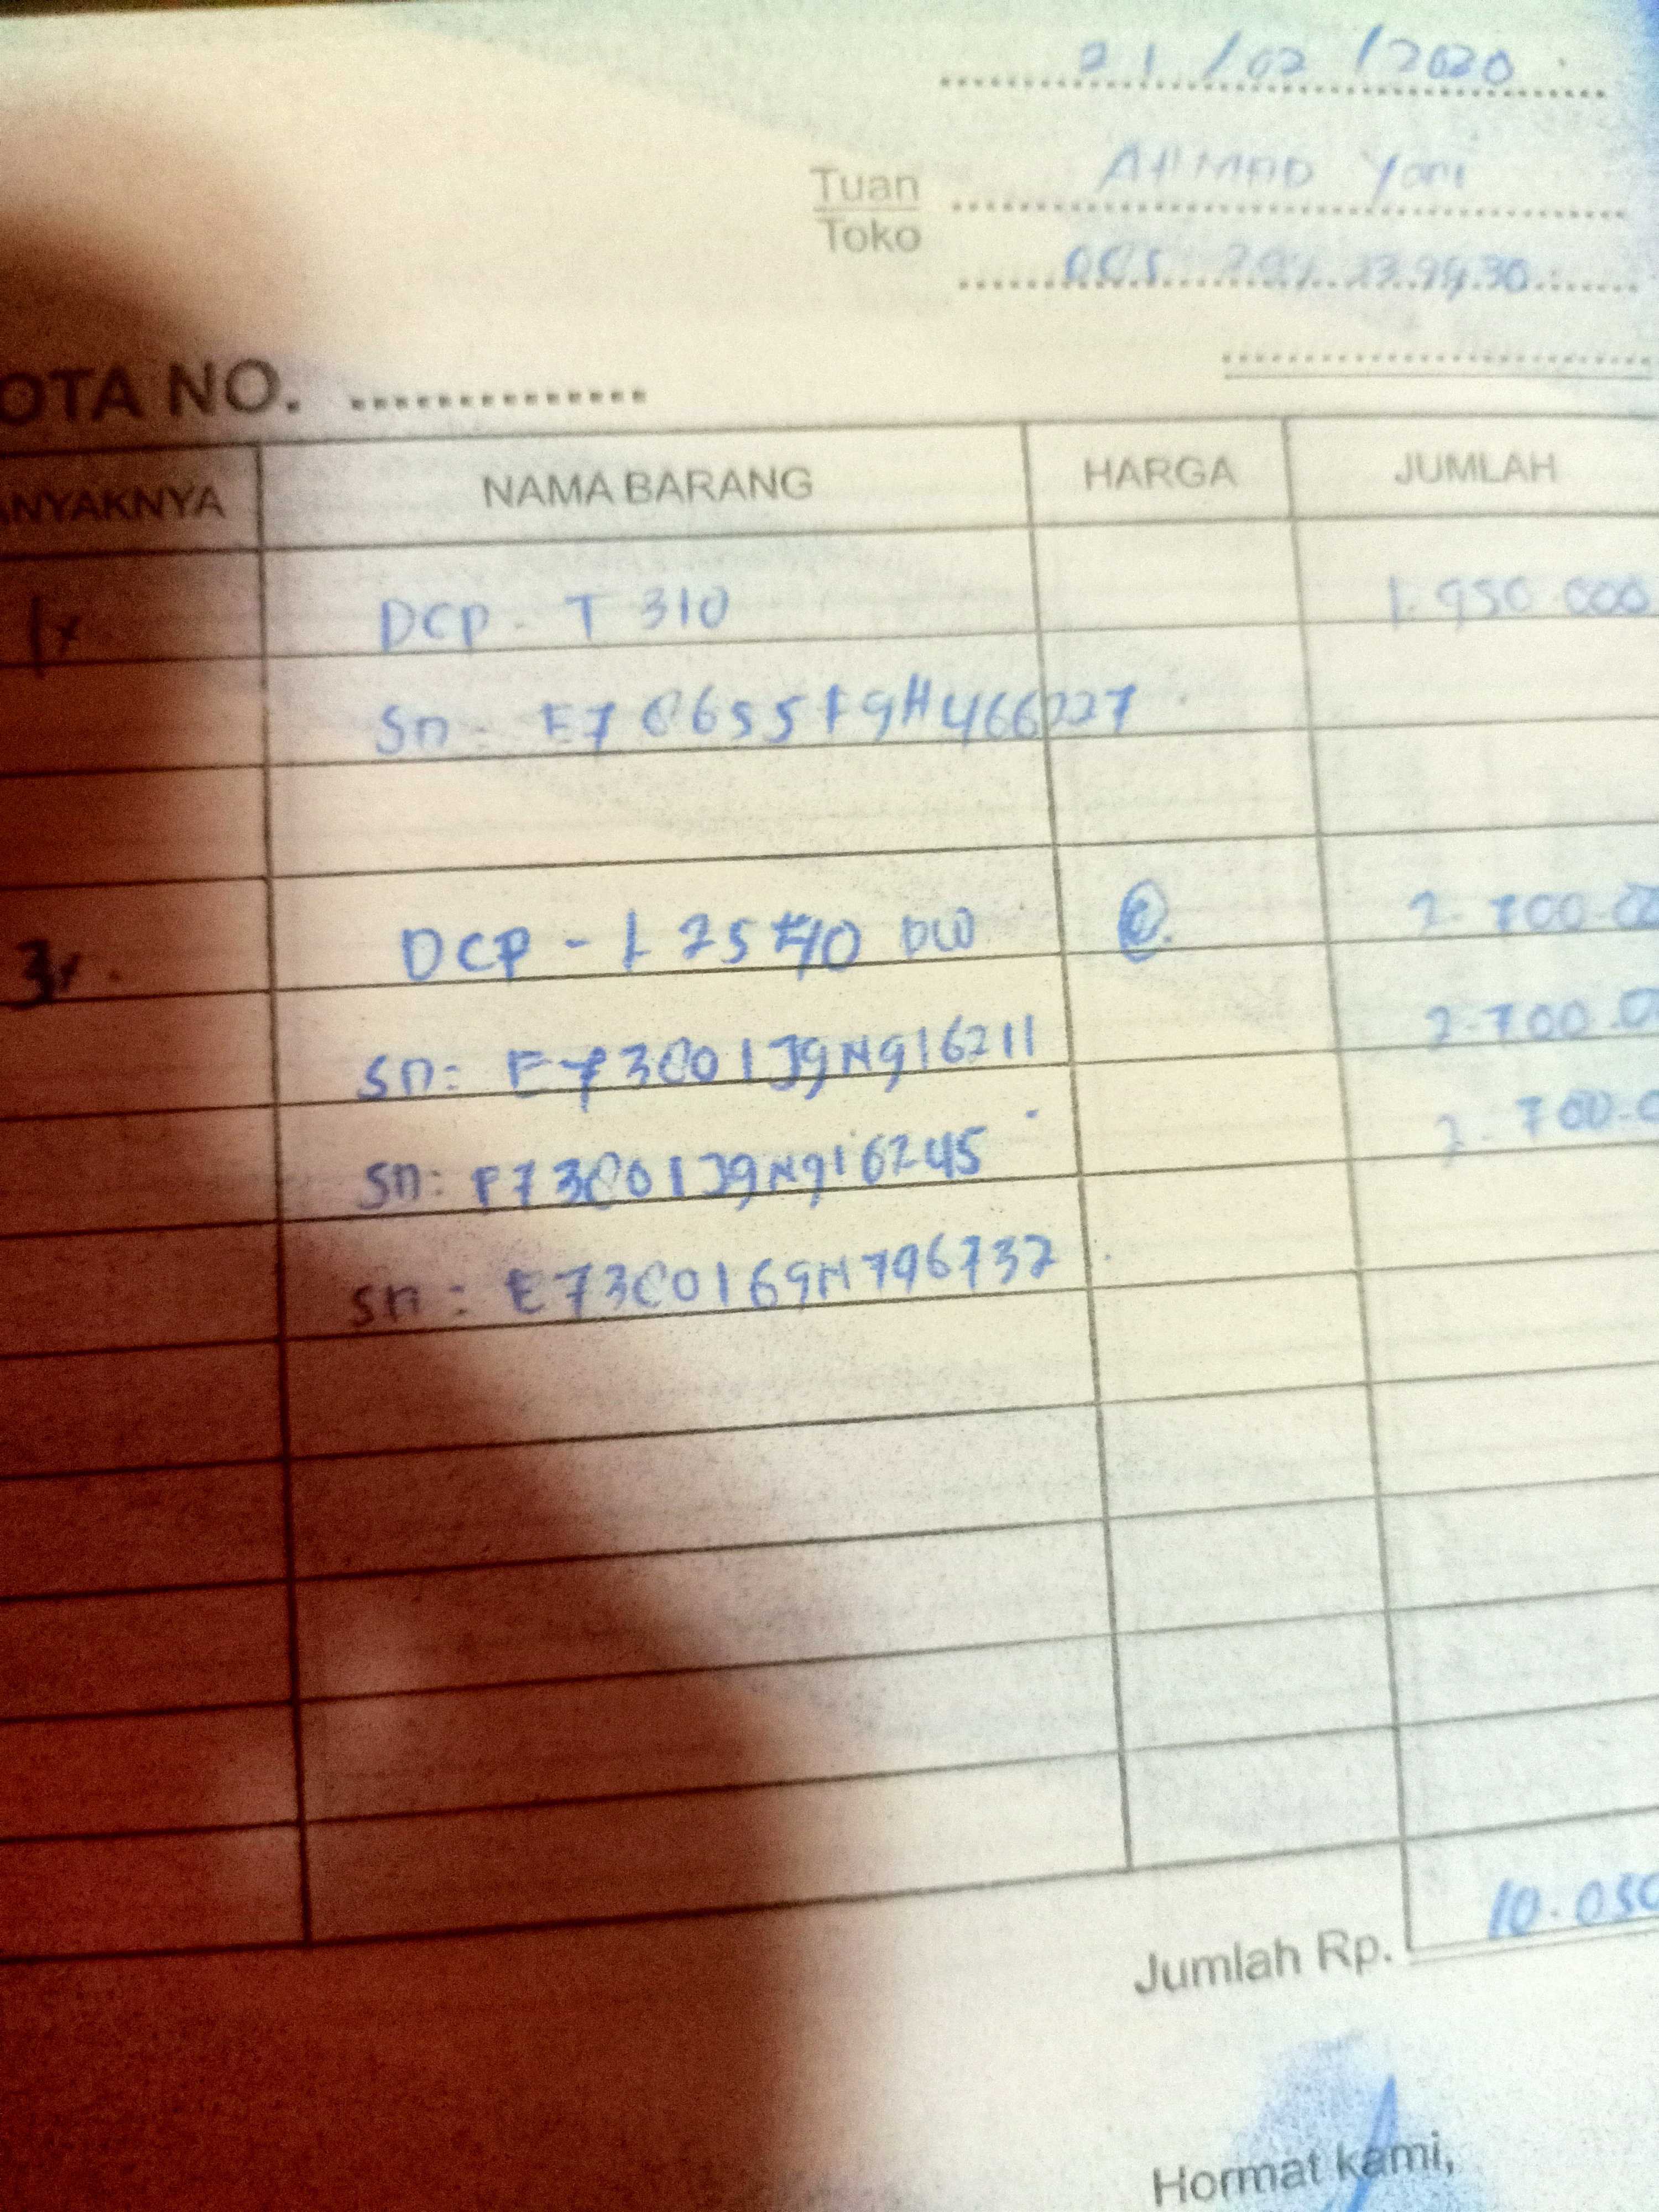 21/02/2020
Tuan AHMAD Yani
Toko
OTA NO.
ANYAKNYA NAMA BARANG HARGA JUMLAH
1x DCP - T 310 1.950.000
Sn:
3x. DCP - L 2540 DW @. 2.700.00
sn: E73801J9N916211 2.700.0
sn: F73801J9N916245 2.700.0
sn: E7380169N796732
Jumlah Rp. 10.050
Hormat kami,